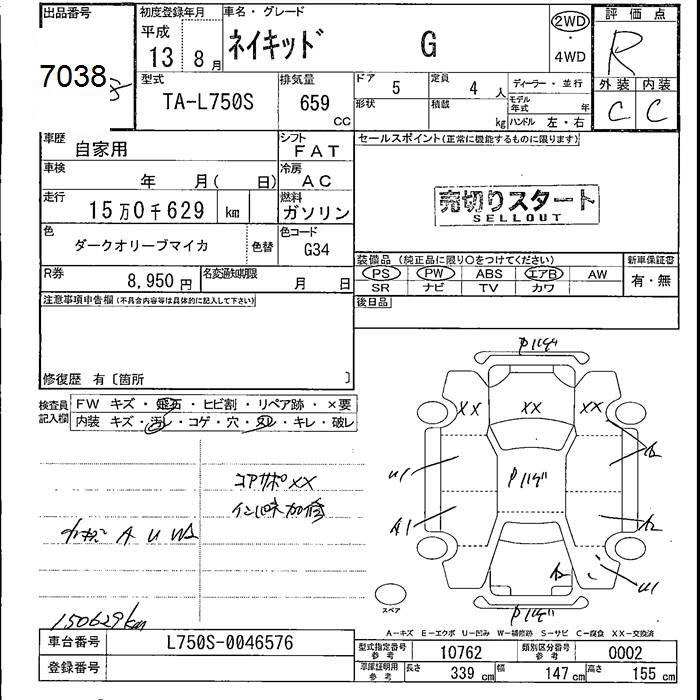 出品番号
7038
初度登録年月
平成
13 8月
車名・グレード
ネイキッド G
2WD
・
4WD
評価点
R
外装 内装
C C
型式
TA-L750S
排気量
659
CC
ドア
5
定員
4 人
形状
積載
kg
ディーラー・並行
モデル年式 年
ハンドル 左・右
車歴
自家用
シフト
FAT
車検
年 月( 日)
冷房
AC
走行
15万0千629 km
燃料
ガソリン
色
ダークオリーブマイカ
色替
色コード
G34
R券
8,950円
名変通知期限
月 日
セールスポイント(正常に機能するものに限ります)
売切りスタート
SELLOUT
装備品(純正品に限り○をつけてください)
新車保証書
PS PW ABS エアB AW
SR ナビ TV カワ
有・無
後日品
注意事項申告欄(不具合内容等は具体的に記入して下さい)
修復歴 有〔箇所 〕
検査員記入欄
FW キズ・飛石・ヒビ割・リペア跡・×要
内装 キズ・汚レ・コゲ・穴・スレ・キレ・破レ
コアサポXX
インパネ加修
A U W2
150629km
XX XX XX
U1
A1
U1
スペア
A-キズ E-エクボ U-凹み W-補修跡 S-サビ C-腐食 XX-交換済
車台番号
L750S-0046576
登録番号
型式指定番号
参考
10762
類別区分番号
参考
0002
車庫証明用
参考
長さ 339 cm
幅 147 cm
高さ 155 cm